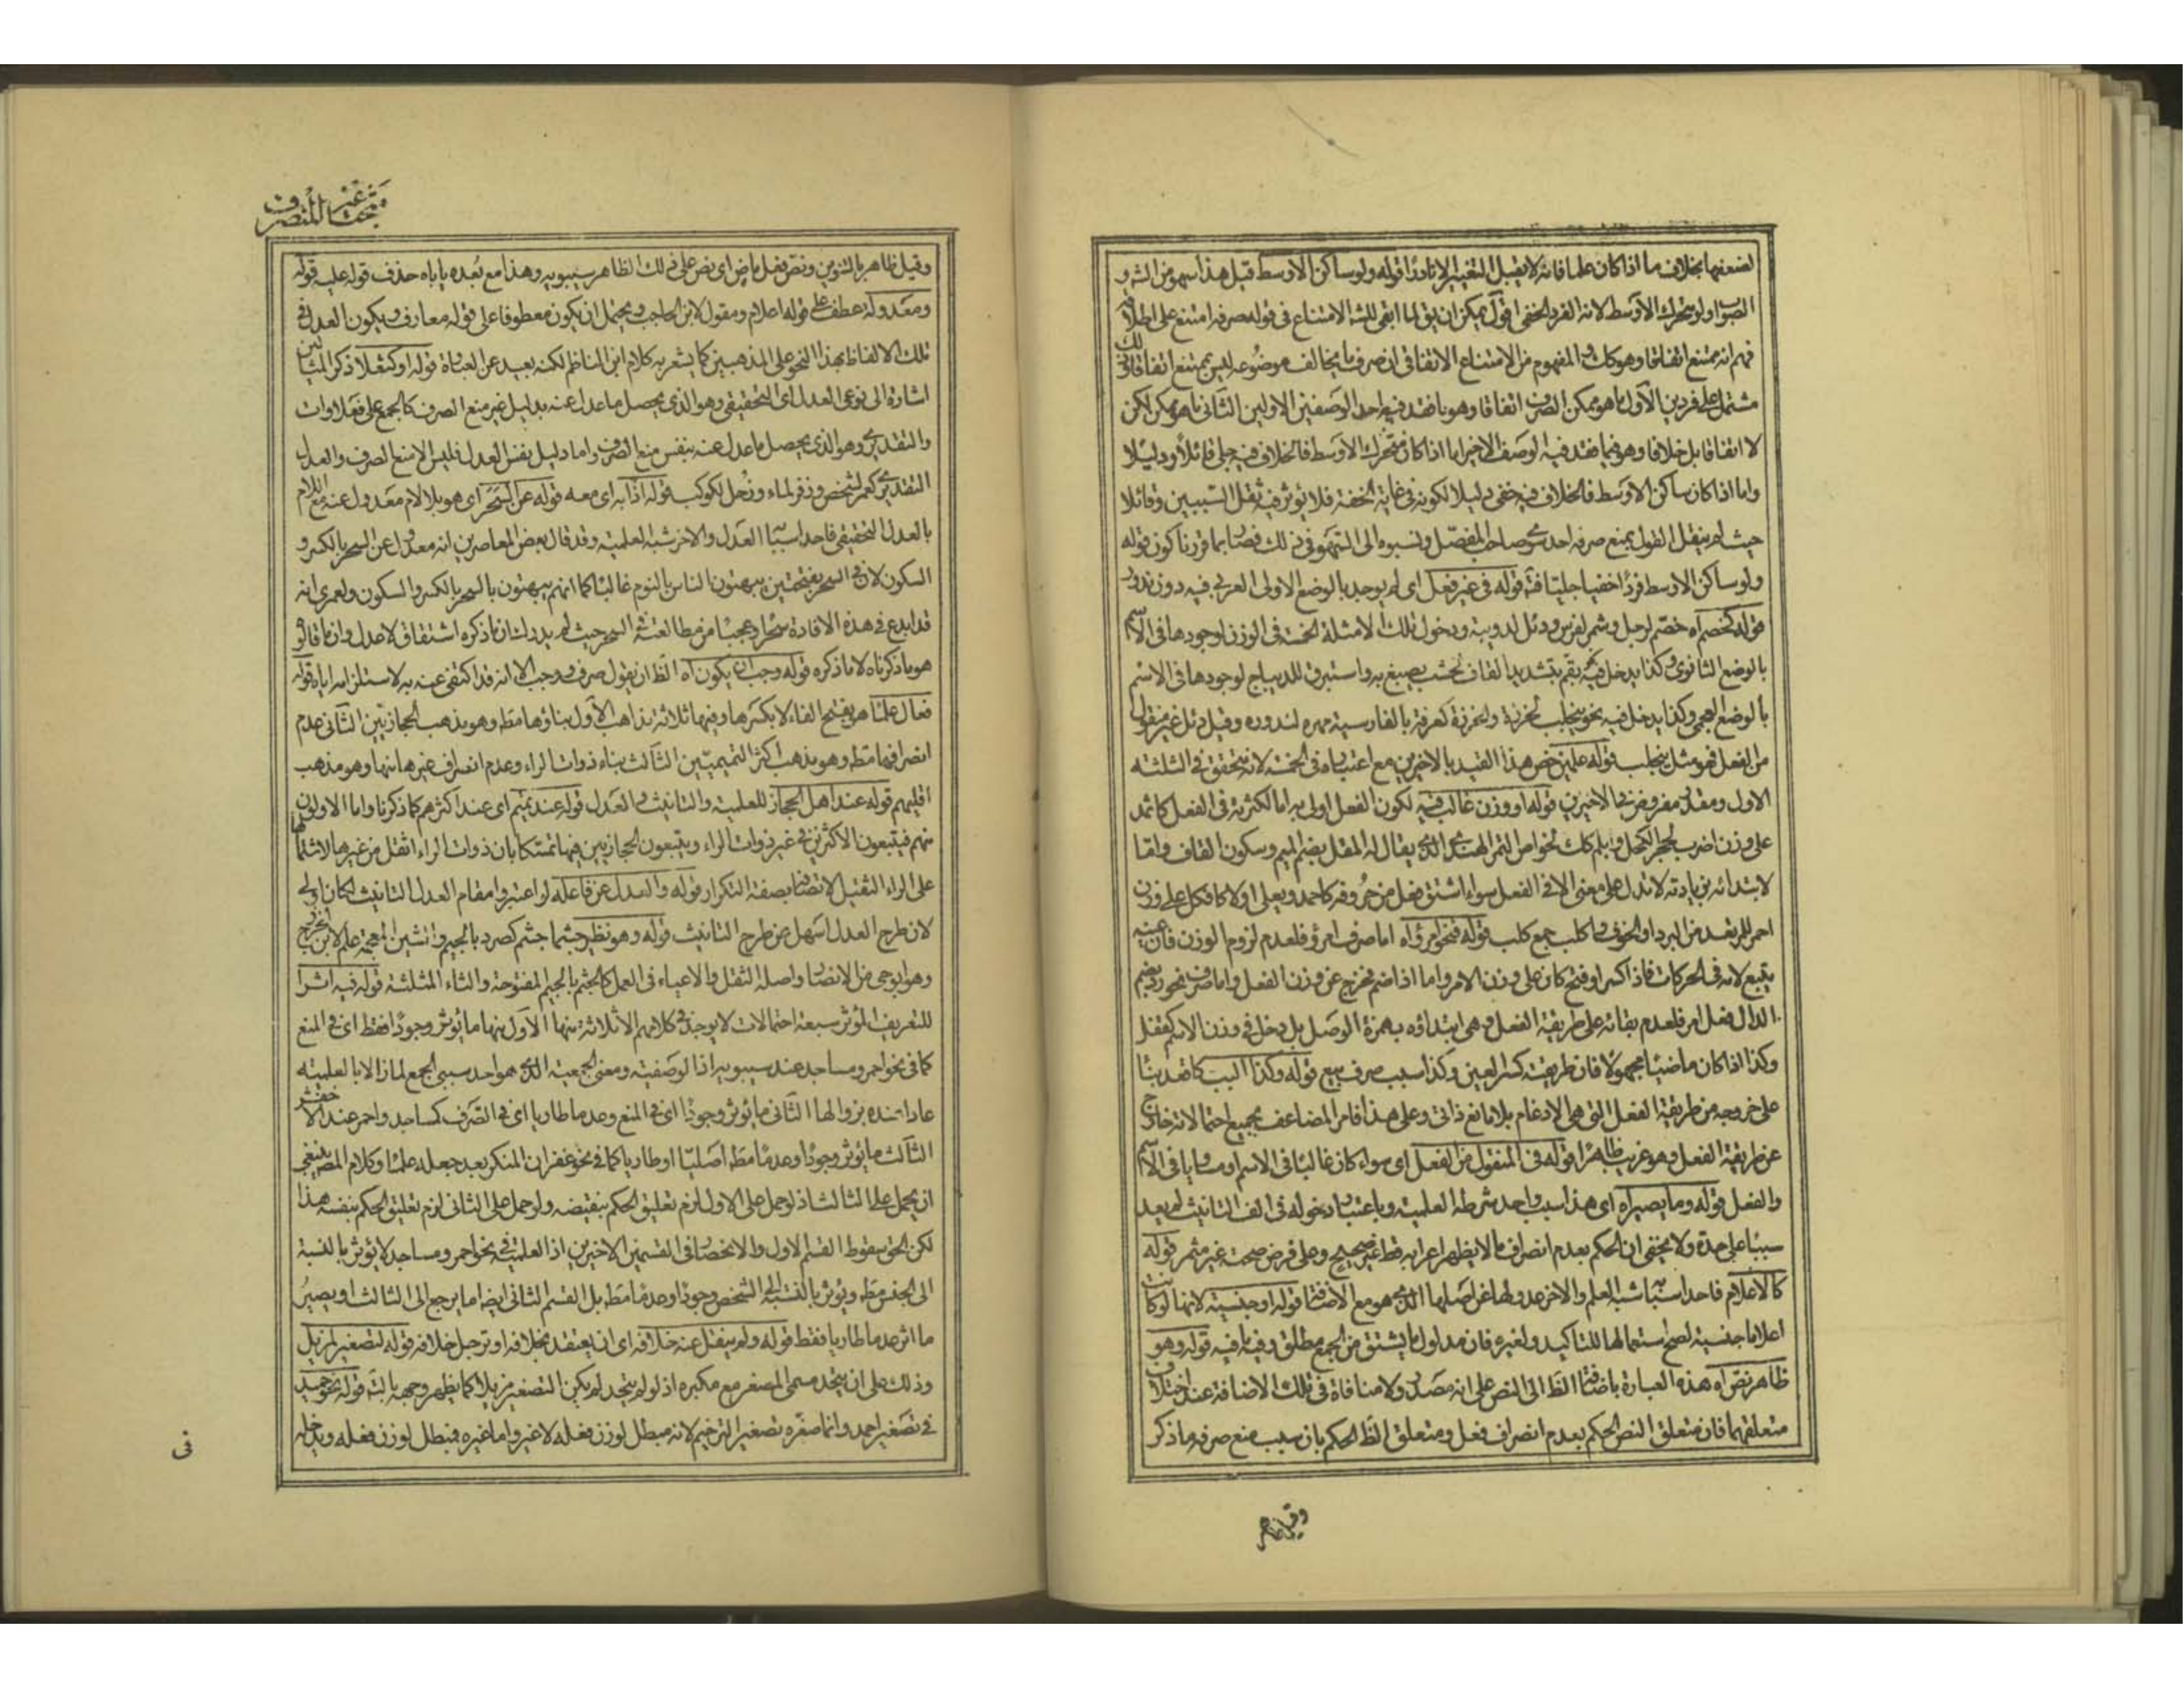 لضعفها بخلاف ما اذا كان علما فانه لا يقبل التغيير الا نادرا قوله ولو ساكن الاوسط قيل هذا سهو من الشه و
الصوا ولو متحرك الاوسط لانه الفرد الخفى اقول يمكن ان يق لما ابقى الشه الامتناع فى قوله صرفه امتنع على اطلاقه
فهم انه ممتنع اتفاقا وهو كك و المفهوم من الامتناع الاتفاقى ان صرف ما يخالف موضوعه ليس بممتنع اتفاقا
مشتمل على فردين الاول ما هو ممكن الصرف اتفاقا وهو ما فقد فيه احد الوصفين الاولين الثانى ما هو ممكن لكن
لا اتفاقا بل خلافا وهو فيما فقد فيه الوصف الاخير اما اذا كان متحرك الاوسط فالخلاف فيه جلى قائلا ودليلا
واما اذا كان ساكن الاوسط فالخلاف فيه خفى دليلا لكونه فى غاية الخفة فلا يؤثر فيه ثقل السببين وقائلا
حيث لم ينقل القول بمنع صرفه احد سوى صاحب المفصل ونسبوه الى السهو فى ذلك فصا بما قررنا كون قوله
ولو ساكن الاوسط فردا خفيا جليا فت قوله فى غير فعل اى لم يوجد بالوضع الاولى العربى فيه دون ندور
قوله كخصم اه خصم لرجل وشمر لفرس ودئل لدويبة ودخول تلك الامثلة الخمسة فى الوزن لوجودها فى الاسم
بالوضع الثانوى وكذا يدخل فيه بقم بتشديد القاف لخشب يصبغ به واستبرق للديباج لوجودها فى الاسم
بالوضع العجمى وكذا يدخل فيه نحو ينجلب لخرزة والخرزة كعرفة بالفارسية مهره لندوره وقيل دئل غير منقول
من الفعل فهو مثل ينجلب قوله علمين خص هذا القيد بالاخيرين مع اعتباره فى الخمسة لانه متحقق فى الثلثة
الاول ومقدر مفروض فى الاخيرين قوله او وزن غالب فيه لكون الفعل اولى به اما لكثرته فى الفعل كاثمد
على وزن اضرب لحجر الكحل وابلم كك لخواص الثمر الهندى الذى يقال له المقل بضم الميم وسكون القاف واما
لابتدائه بزيادته لا تدل على معنى الا فى الفعل سواء اشتق فعل من حروفه كاحمد ويعلى او لا كافكل على وزن
احمر للرعد من البرد او الخوف واكلب جمع كلب قوله فنحو امرؤ اه اما صرف امرؤ فلعدم لزوم الوزن فان عينه
يتبع لامه فى الحركات فاذا كسر او فتح كان على وزن الامر واما اذا ضم فخرج عن وزن الفعل واما صرف نحو رد بضم
الدال فعل امر فلعدم بقائه على طريقة الفعل وهى ابتداؤه بهمزة الوصل بل دخل فى وزن الاسم كقفل
وكذا اذا كان ماضيا مجهولا فان طريقته كسر العين وكذا سبب صرف بيع قوله وكذا البب كاضد بنا
على خروجه من طريقة الفعل التى هى الادغام بلا مانع ذاتى وعلى هذا فامر المضاعف بجميع احتمالاته خارج
عن طريقة الفعل وهو غريب ظاهرا قوله فى المنقول من الفعل اى سواء كان غالبا فى الاسم او مساويا فى الاسم
والفعل قوله وما يصير اه اى هذا سبب واحد شرطه العلمية وباعتبار دخوله فى الف التانيث لم يعد
سببا على حدة ولا يخفى ان الحكم بعدم انصراف ما لا يظهر اعرابه قط غير صحيح وعلى فرض صحته غير مثمر قوله
كالاعلام فاحد اسبابه شبه العلم والاخر عدولها عن اصلها الذى هو مع الاضافة قوله او جنسية لانها لو كانت
اعلاما جنسية لصح استعمالها للتاكيد ولغيره فان مدلول ما يشتق من الجمع مطلق وفيه ما فيه قوله وهو
ظاهر نص اه هذه العبارة باضافة الظ الى النص على انه مصدر ولا منافاة فى تلك الاضافة عند اختلاف
متعلقهما فان متعلق النص الحكم بعدم انصراف فعل ومتعلق الظ الحكم بان سبب منع صرفه ما ذكر
وقيل ظاهر
مبحث غير المنصرف
وقيل ظاهر بالتنوين ونص فعل ماض اى نص على ذلك الظاهر سيبويه وهذا مع بعده ياباه حذف قوله عليه قوله
ومعدولة عطف على قوله اعلام ومقول لابن الحاجب ويحتمل ان يكون معطوفا على قوله معارف ويكون العدل فى
تلك الالفاظ بهذا النحو على المذهبين كما يشعر به كلام ابن الناظم لكنه بعيد عن العبارة قوله او كثعل ذكر المثالين
اشارة الى نوعى العدل اى التحقيقى وهو الذى يحصل ما عدل عنه بدليل غير منع الصرف كالجمع على فعلاوات
والتقديرى وهو الذى يحصل ما عدل عنه بنفس منع الصرف واما دليل نفس العدل فليس الا منع الصرف والعدل
التقديرى كعمر لشخص وزفر لماء وزحل لكوكب قوله اذا به اى معه قوله عن السحر اى هو بلا لام معدول عنه مع اللام
بالعدل التحقيقى فاحد اسبابه العدل والاخر شبه العلمية وقد قال بعض المعاصرين انه معدول عن السحر بالكسر و
السكون لان فى السحر بفتحتين يبهتون الناس بالنوم غالبا كما انهم يبهتون بالسحر بالكسر والسكون ولعمرى انه
قد ابدع فى هذه الافادة سحرا وعجبا من مطالعته السحر حيث لم يدر ان ما ذكره اشتقاق لا عدل وان ما قالو
هو ما ذكرناه لا ما ذكره قوله وجب ان يكون اه الظ ان يقول صرف وجب الا انه قد اكتفى عنه به لاستلزامه اياه قوله
فعال علما هو بفتح الفاء لا بكسرها وفيها ثلاثة مذاهب الاول بناؤها مط وهو مذهب الحجازيين الثانى عدم
انصرافها مط وهو مذهب اكثر التميميين الثالث بناء ذوات الراء وعدم انصراف غيرها منها وهو مذهب
اقليهم قوله عند اهل الحجاز للعلمية والتانيث والعدل قوله عند تميم اى عند اكثرهم كما ذكرنا واما الاولون
منهم فيتبعون الاكثرين فى غير ذوات الراء ويتبعون الحجازيين فيها تمسكا بان ذوات الراء اثقل من غيرها لاشتمالها
على الراء الثقيل لاتصافها بصفة التكرار قوله والعدل عن فاعله لو اعتبروا مقام العدل التانيث لكان اولى
لان طرح العدل اسهل من طرح التانيث قوله وهو نظير جشما جشم كصرد بالجيم والشين المعجمة علم لابن الخزرج
وهو ابو حى من الانصار واصله الثقل والاعياء فى العمل كالجثم بالجيم المفتوحة والثاء المثلثة قوله فيه اثرا
للتعريف المؤثر سبعة احتمالات لا يوجد فى كلامهم الا ثلاثة منها الاول منها ما يؤثر وجودا فقط اى فى المنع
كما فى نحو احمر ومساجد عند سيبويه اذ الوصفية ومعنى الجمعية الذى هو احد سببى الجمع لما زالا بالعلمية
عادا عنده بزوالها الثانى ما يؤثر وجودا اى فى المنع وعدما طاريا اى فى الصرف كمساجد واحمر عند الاخفش
الثالث ما يؤثر وجودا وعدما مط اصليا او طاريا كما فى نحو غفران المنكر بعد جعله علما وكلام المصر ينبغى
ان يحمل على الثالث اذ لو حمل على الاول لزم تعليق الحكم بنقيضه ولو حمل على الثانى لزم تعليق الحكم بنفسه هذا
لكن الحق سقوط القسم الاول والانحصار فى القسمين الاخيرين اذ العلمية فى نحو احمر ومساجد لا يؤثر بالنسبة
الى الجنس مط ويؤثر بالنسبة الى الشخص وجودا وعدما مط بل القسم الثانى ايضا ما يرجع الى الثالث او يصير
ما اثر عدما طاريا فقط قوله ولم ينقل عنه خلافه اى ان يعتقد بخلافه او ترجل خلافه قوله لتصغير مزيل
وذلك على ان يتحد مسمى المصغر مع مكبره اذ لو لم يتحد لم يكن التصغير مزيلا كما يظهر وجهه بالت قوله نحو حميد
فى تصغير احمد وانما صغره تصغير الترخيم لانه مبطل لوزن فعله لا غير واما غيره فمبطل لوزن فعله ويدخله
فى